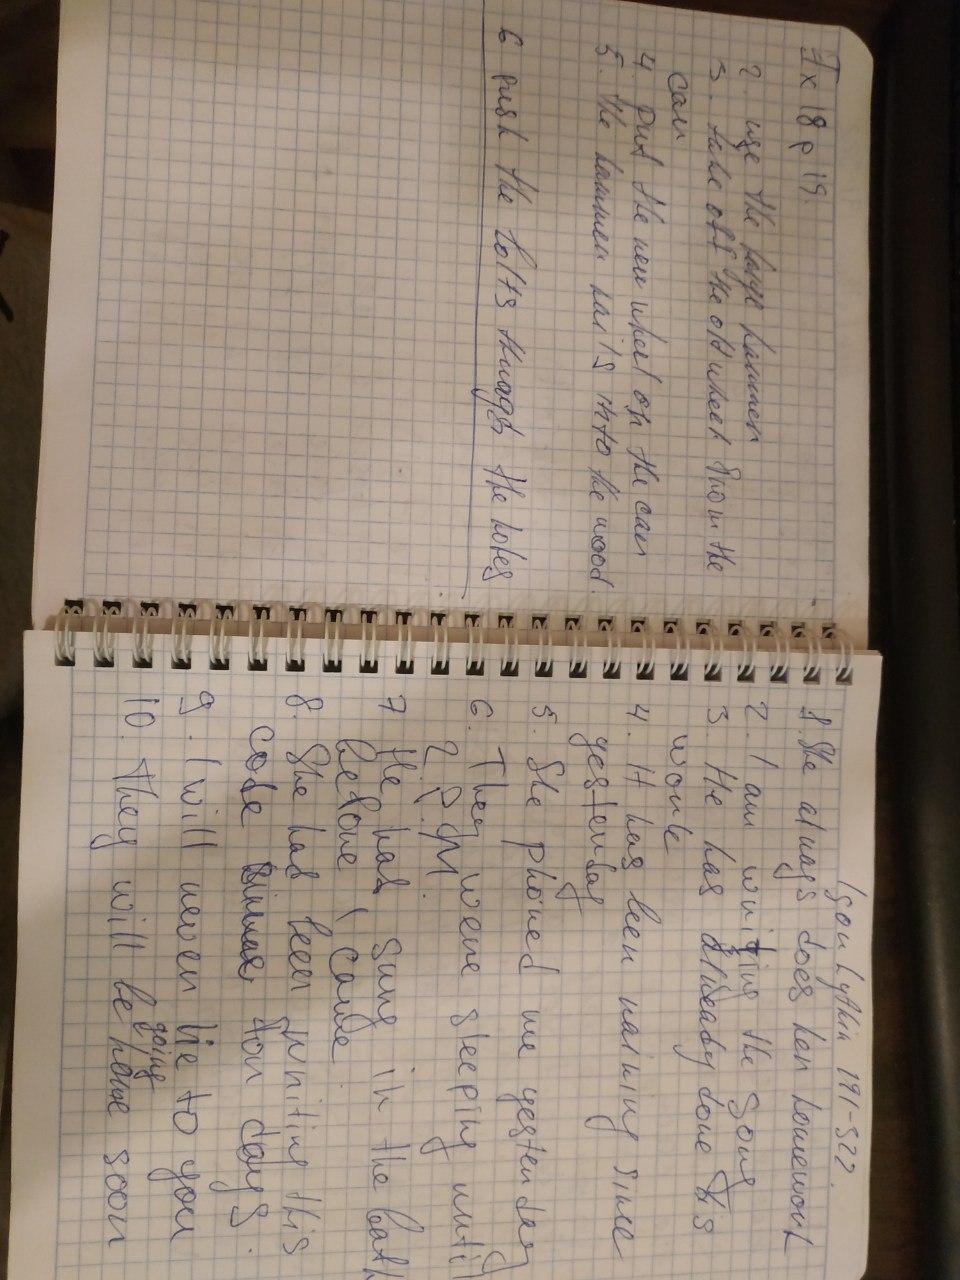 Ex 18 p 19.
2. use the large hammer
3. take off the old wheel from the
car
4 put the new wheel on the car
5. the hammer nails into the wood.
6 push the bolts through the holes
191-322.
1. She always does her homework
2. I am writing the song
3. He has already done his
work
4. It has been raining since
yesterday
5. She phoned me yesterday
6. They were sleeping until
2 p.m.
7 He had sung in the bath
before I came
8. She had been writing this
code for days.
9. I will never lie to you
10. They will be going home soon